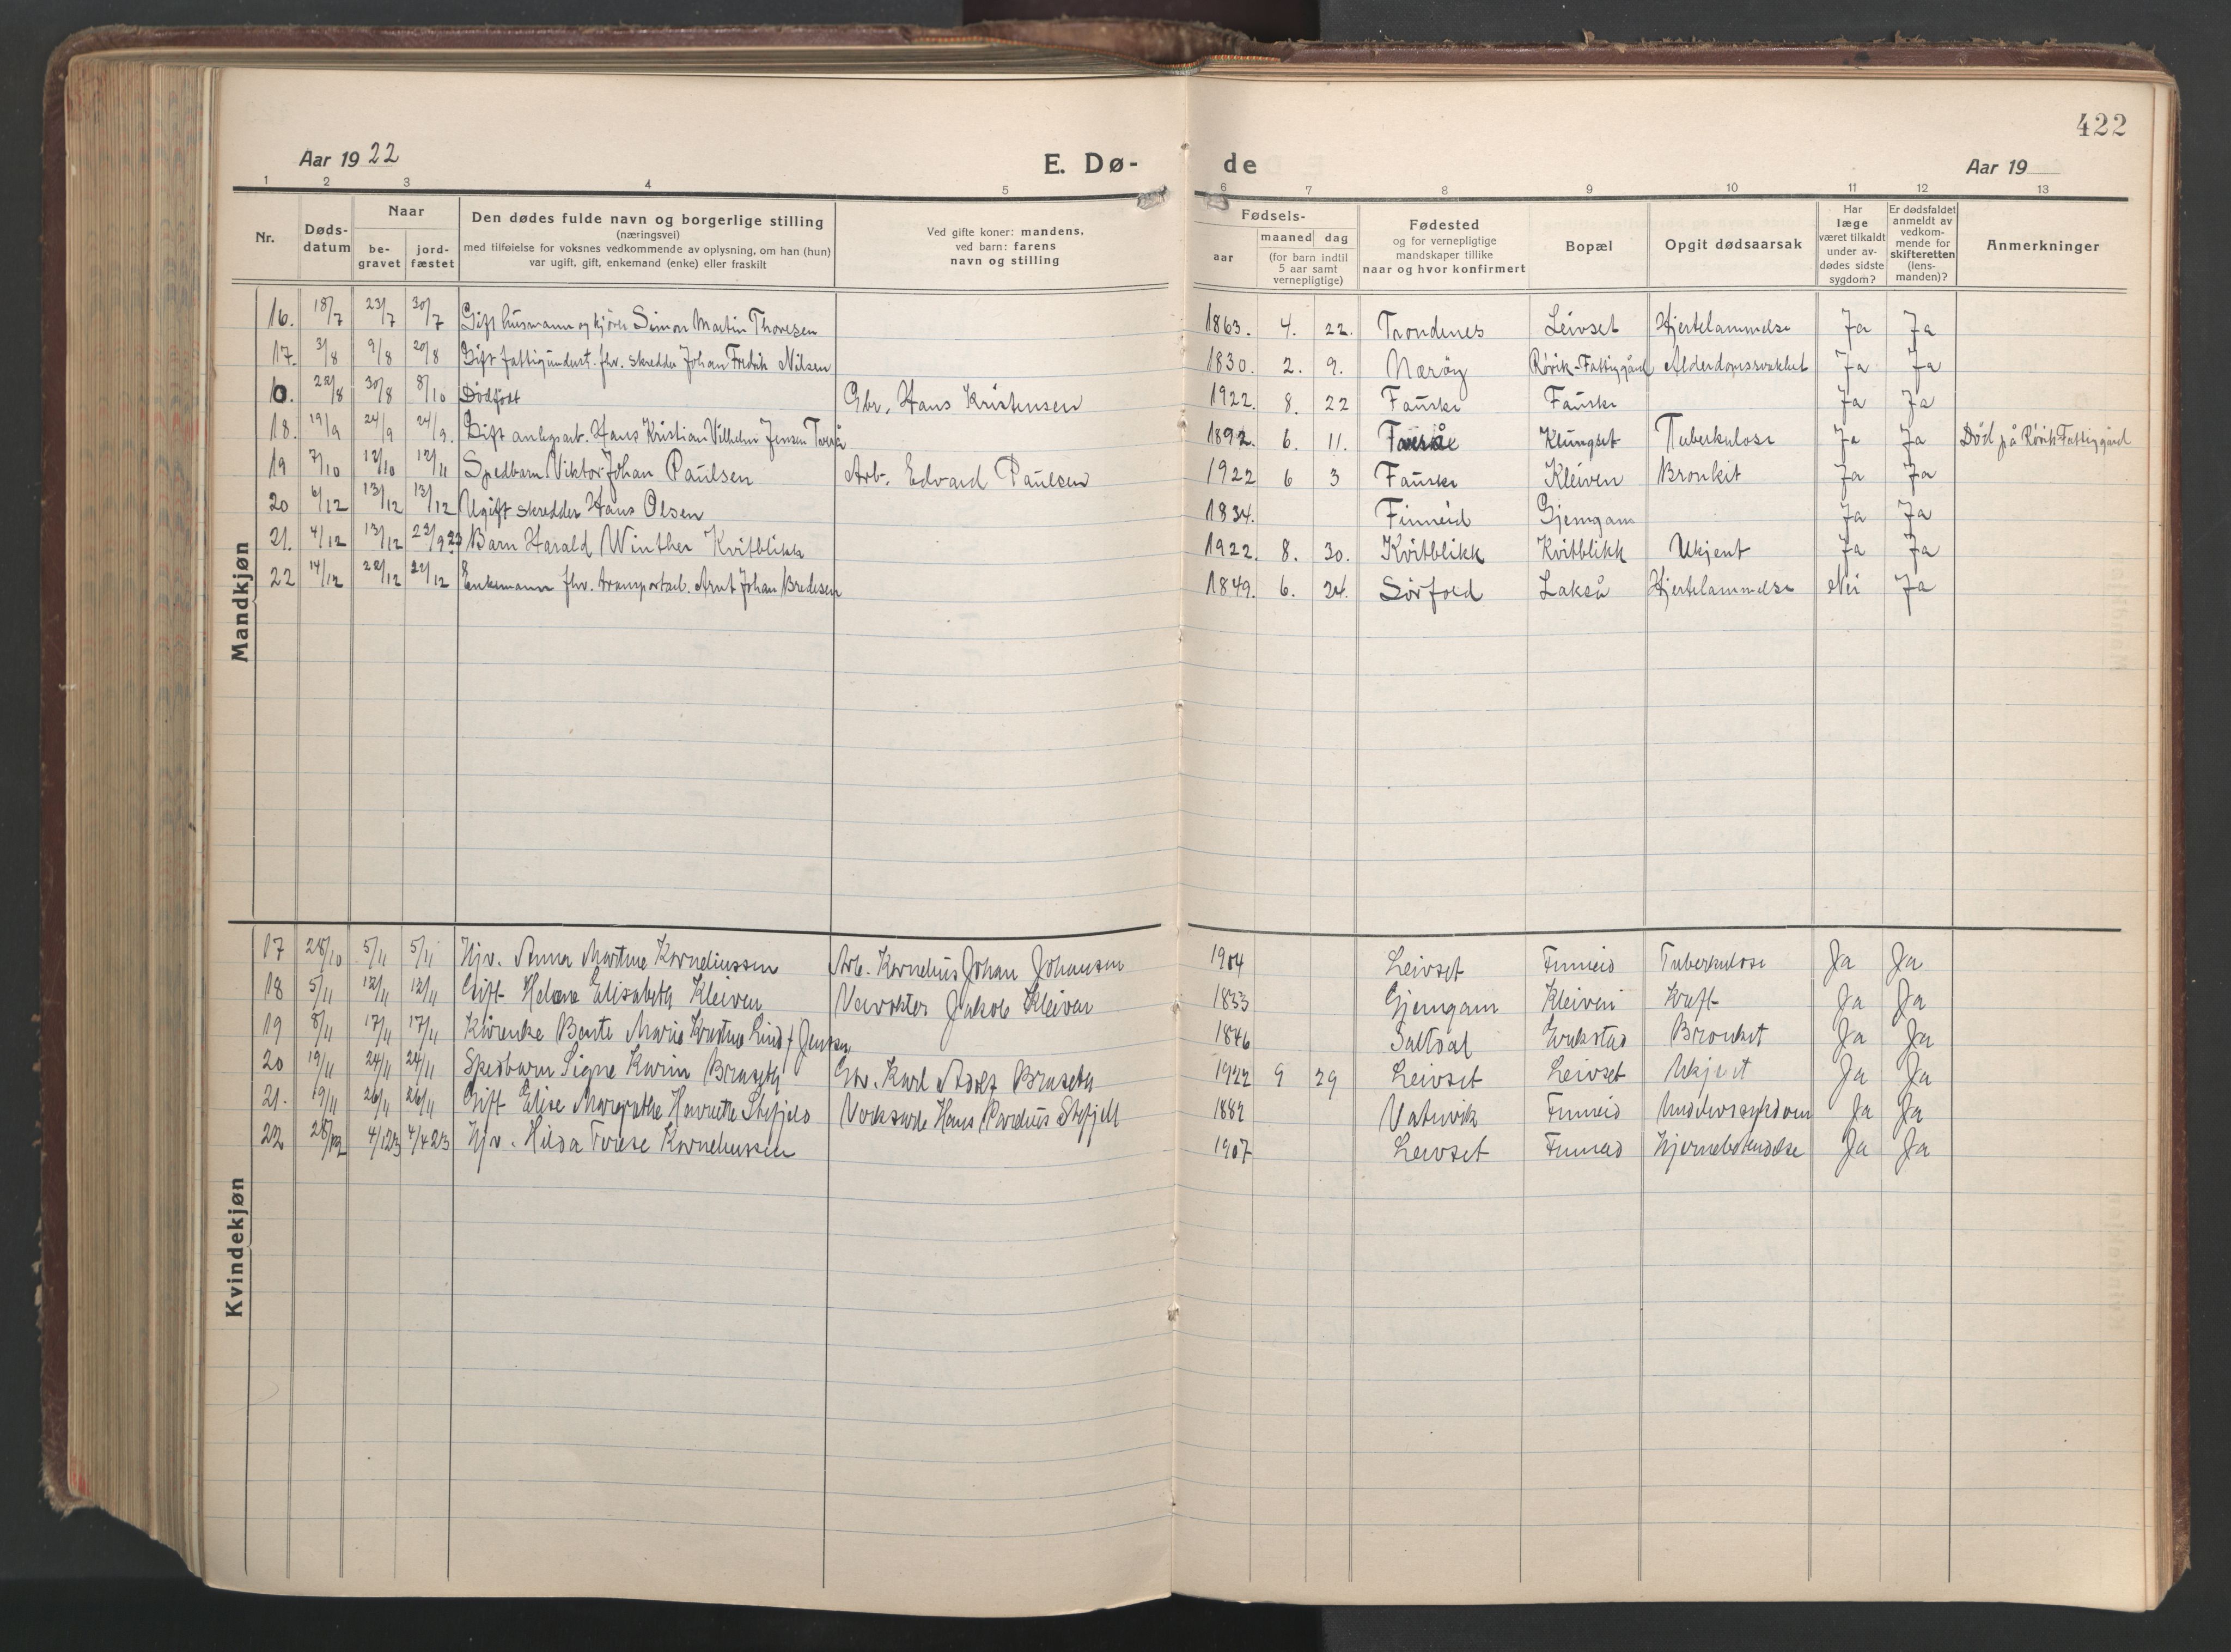 422
Aar 1922 E. Dø- de Aar 19
1 2 3 4 5 6 7 8 9 10 11 12 13
Nr. Døds-datum Naar be-gravet jord-fæstet Den dødes fulde navn og borgerlige stilling (næringsvei) med tilføielse for voksnes vedkommende av oplysning, om han (hun) var ugift, gift, enkemand (enke) eller fraskilt Ved gifte koner: mandens, ved barn: farens navn og stilling Fødsels- aar maaned dag (for barn indtil 5 aar samt vernepligtige) Fødested og for vernepligtige mandskaper tillike naar og hvor konfirmert Bopæl Opgit dødsaarsak Har læge været tilkaldt under av-dødes sidste sygdom? Er dødsfaldet anmeldt av vedkom-mende for skifteretten (lens-manden)? Anmerkninger
Mandkjøn
16. 18/7 23/7 30/7 Gift husmann og kjører Simon Martin Thoresen 1863. 4. 22. Trondenes Leivset Hjertelammelse Ja Ja
17. 3/8 9/8 20/8 Gift fattigunderst. fhv. skredder Johan Fredrik Nilsen 1830. 2. 9. Nærøy Rørik-Fattiggård Alderdomssvakhet Ja Ja
0. 22/8 30/8 8/10 Dødfødt Gbr. Hans Kristensen 1922. 8. 22 Fauske Fauske Ja Ja
18. 19/9 24/9 24/9. Gift anlegsarb. Hans Kristian Vilhelm Jensen Tverå 1892. 6. 11. Klungset Tuberkulose Ja Ja Død på Rørik Fattiggård
19 7/10 12/10 12/11 Spedbarn Viktor Johan Paulsen Arb. Edvard Paulsen 1922 6 3 Fauske Kleiven Bronkit Ja Ja
20 6/12 13/12 13/12 Ugift skredder Hans Olsen 1834. Finneid Gjemgam Ja Ja
21. 4/12 13/12 23/9 23 Barn Harald Winther Kvitblikk 1922. 8. 30. Kvitblikk Kvitblikk Ukjent Ja Ja
22 14/12 22/12 22/12 Enkemann fhv. transportarb. Arnt Johan Bredesen 1849. 6. 24. Sörfold Lakså Hjertelammelse Nei Ja
Kvindekjøn
17 28/10 5/11 5/11 Ujv. Anna Martine Korneliussen Arb. Kornelius Johan Johansen 1904 Leivset Finneid Tuberkulose Ja Ja
18 5/11 12/11 12/11 Gift Helene Elisabeth Kleiven Jakob Kleiven 1833 Gjemgam Kleiven Kreft Ja Ja
19 8/11 17/11 17/11 Kårenke Bente Marie Kristine Lind f Jensen 1846 Saltdal Erikstad Bronkit Ja Ja
20 19/11 24/11 24/11 Spedbarn Signe Karin Braseth Gbr. Karl Adolf Braseth 1922 9 29 Leivset Leivset Ukjent Ja Ja
21. 19/11 26/11 26/11 Gift Elise Margrethe Henriette Stefjeld Hans Stefjell 1882 Vatnvik Finneid Underlivssykdom Ja Ja
22 28/12 4/1 23 4/4 23 Ujv. Hilda Torese Korneliussen 1907 Leivset Finneid Hjernebetendelse Ja Ja